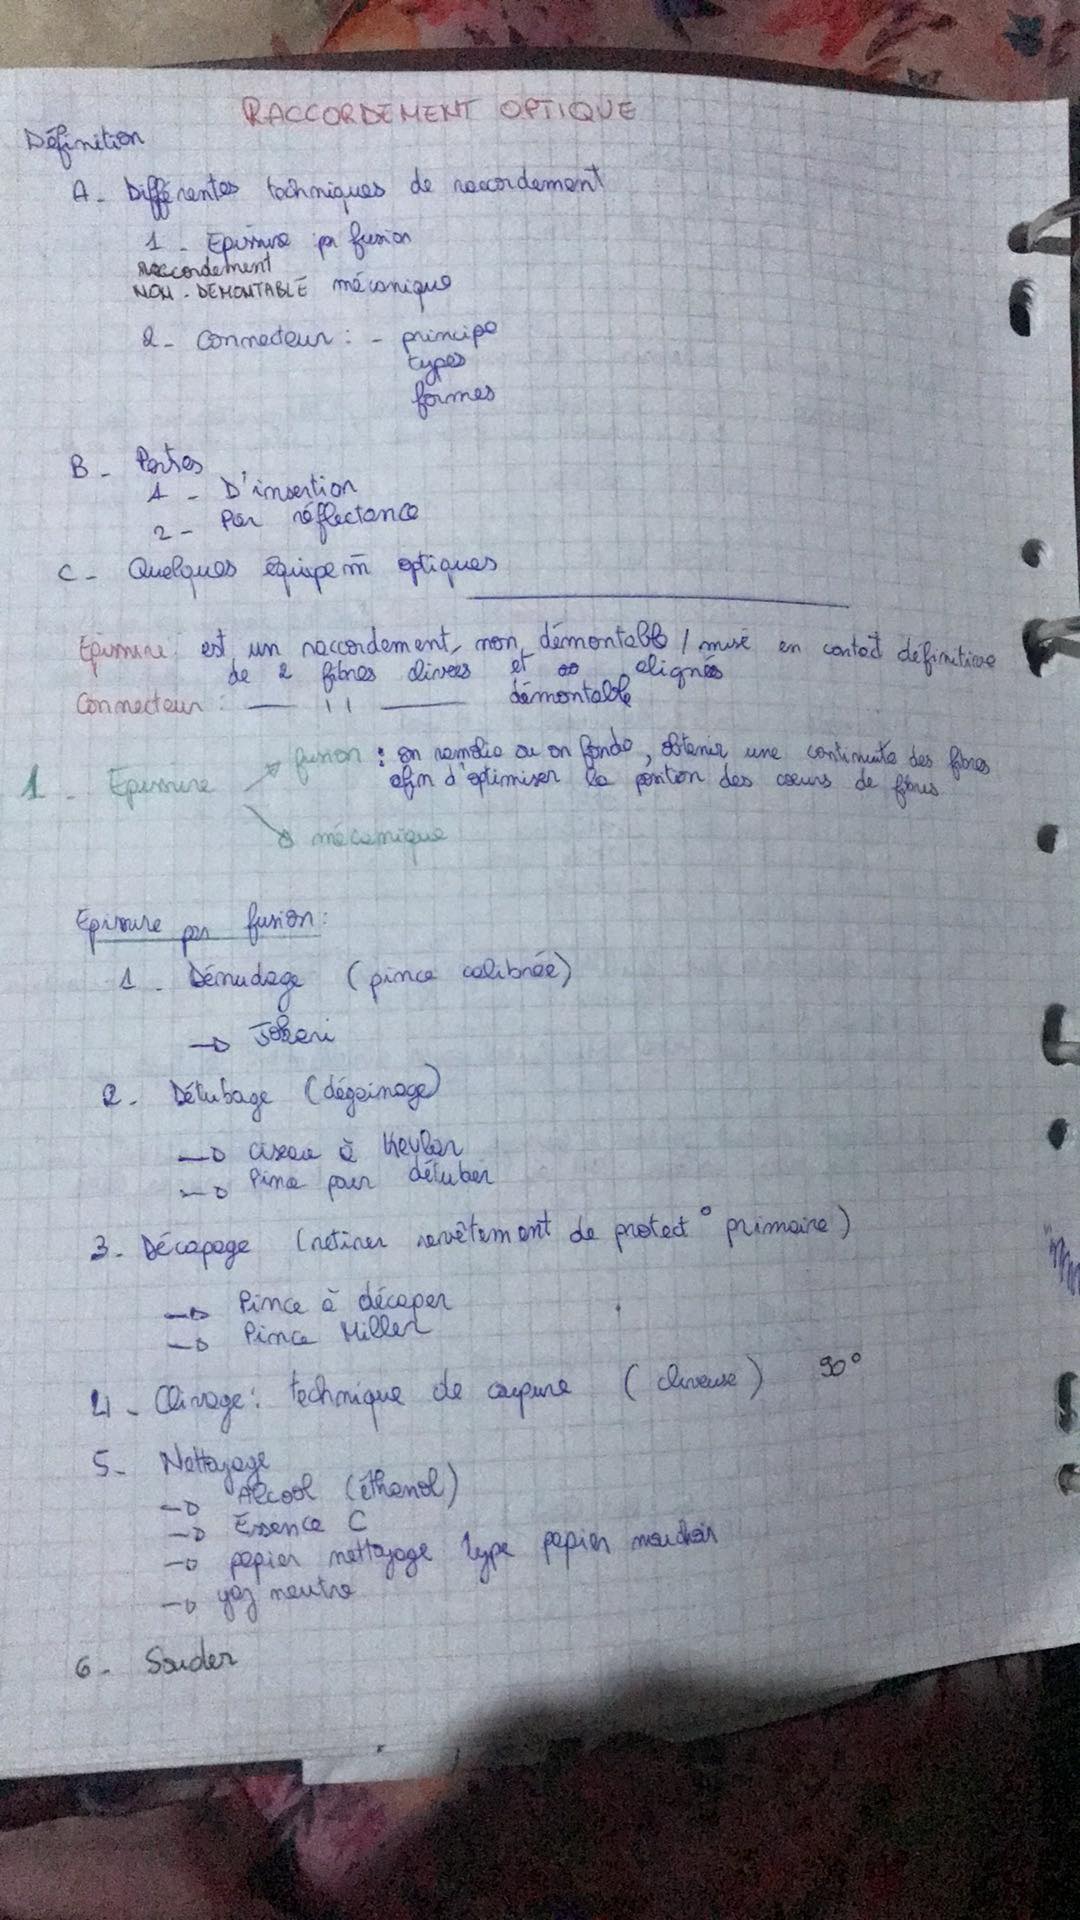 RACCORDEMENT OPTIQUE
Définition
A - Différentes techniques de raccordement
1 - Epissure par fusion
raccordement
NON-DEMONTABLE mécanique
2 - Connecteur : - principe
types
formes
B - Pertes
1 - D'insertion
2 - Par réflectance
C - Quelques équipem̄ optiques
Epissure : est un raccordement non démontable / mise en contact définitive
de 2 fibres clivées et alignés
Connecteur : — '' — démontable
1 - Epissure → fusion : on ramolie ou on fonde, obtenir une continuité des fibres
afin d'optimiser la position des cœurs de fibres
→ mécanique
Epissure par fusion :
1 - Dénudage (pince calibrée)
→ Jokari
2 - Détubage (dégainage)
→ ciseau à Kevlar
→ Pince pour détuber
3 - Décapage (retirer revêtement de protect° primaire)
→ Pince à décaper
→ Pince Miller
4 - Clivage : technique de coupure (cliveuse) 90°
5 - Nettoyage
→ Alcool (éthanol)
→ Essence C
→ papier nettoyage type papier mouchoir
→ gaz neutre
6 - Souder